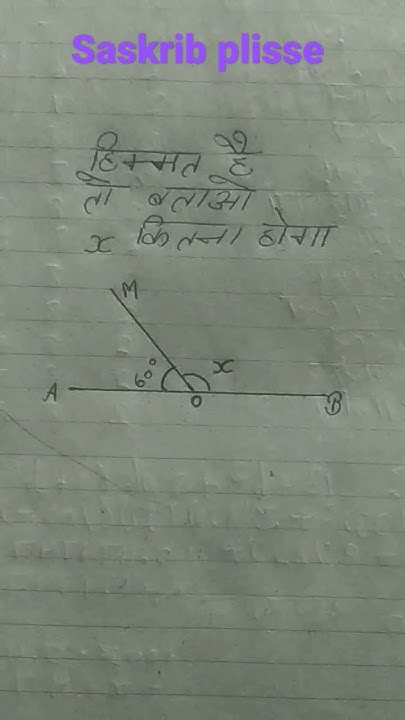 Saskrib plisse
हिम्मत है
तो बताओ
x कितना होगा
M
60° x
A O B